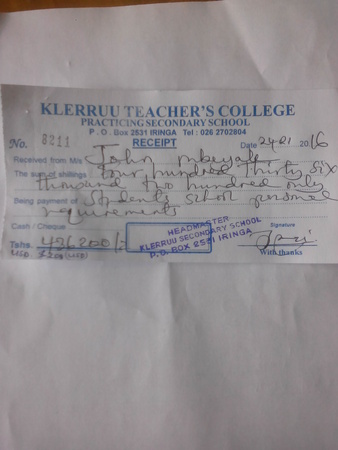 KLERRUU TEACHER'S COLLEGE
PRACTICING SECONDARY SCHOOL
P.O. Box 2531 IRINGA Tel: 026 2702804
No. 8211 RECEIPT Date 2016
Received from M/s John
The sum of shillings four hundred thirty six
thousand two hundred only
Being payment of Student's school personal
requirements
Cash / Cheque
Tshs. 436,200/=
HEADMASTER
KLERRUU SECONDARY SCHOOL
P.O. BOX 2531 IRINGA
Signature
With thanks